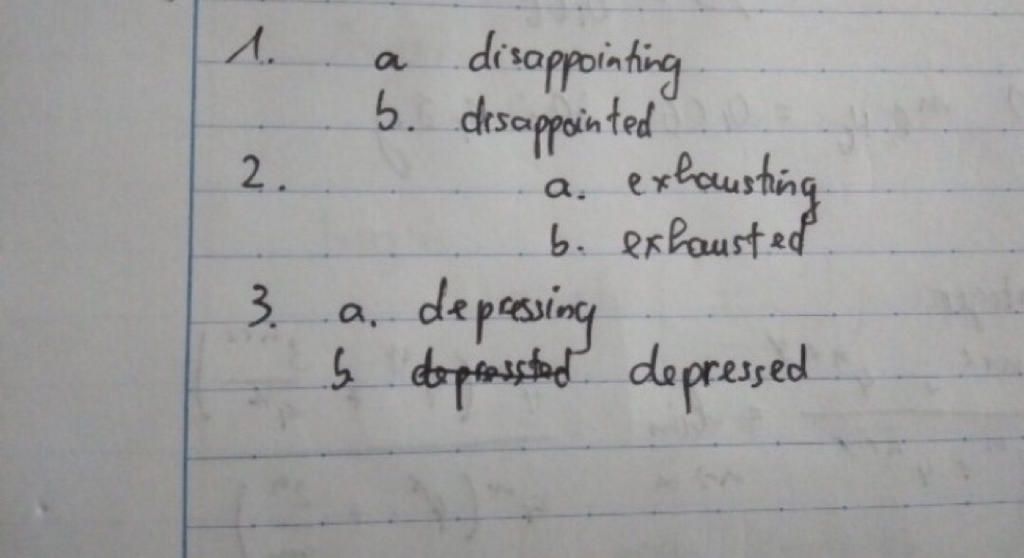 1. a disappointing
b. disappointed
2. a. exhausting
b. exhausted
3. a. depressing
b depressted depressed